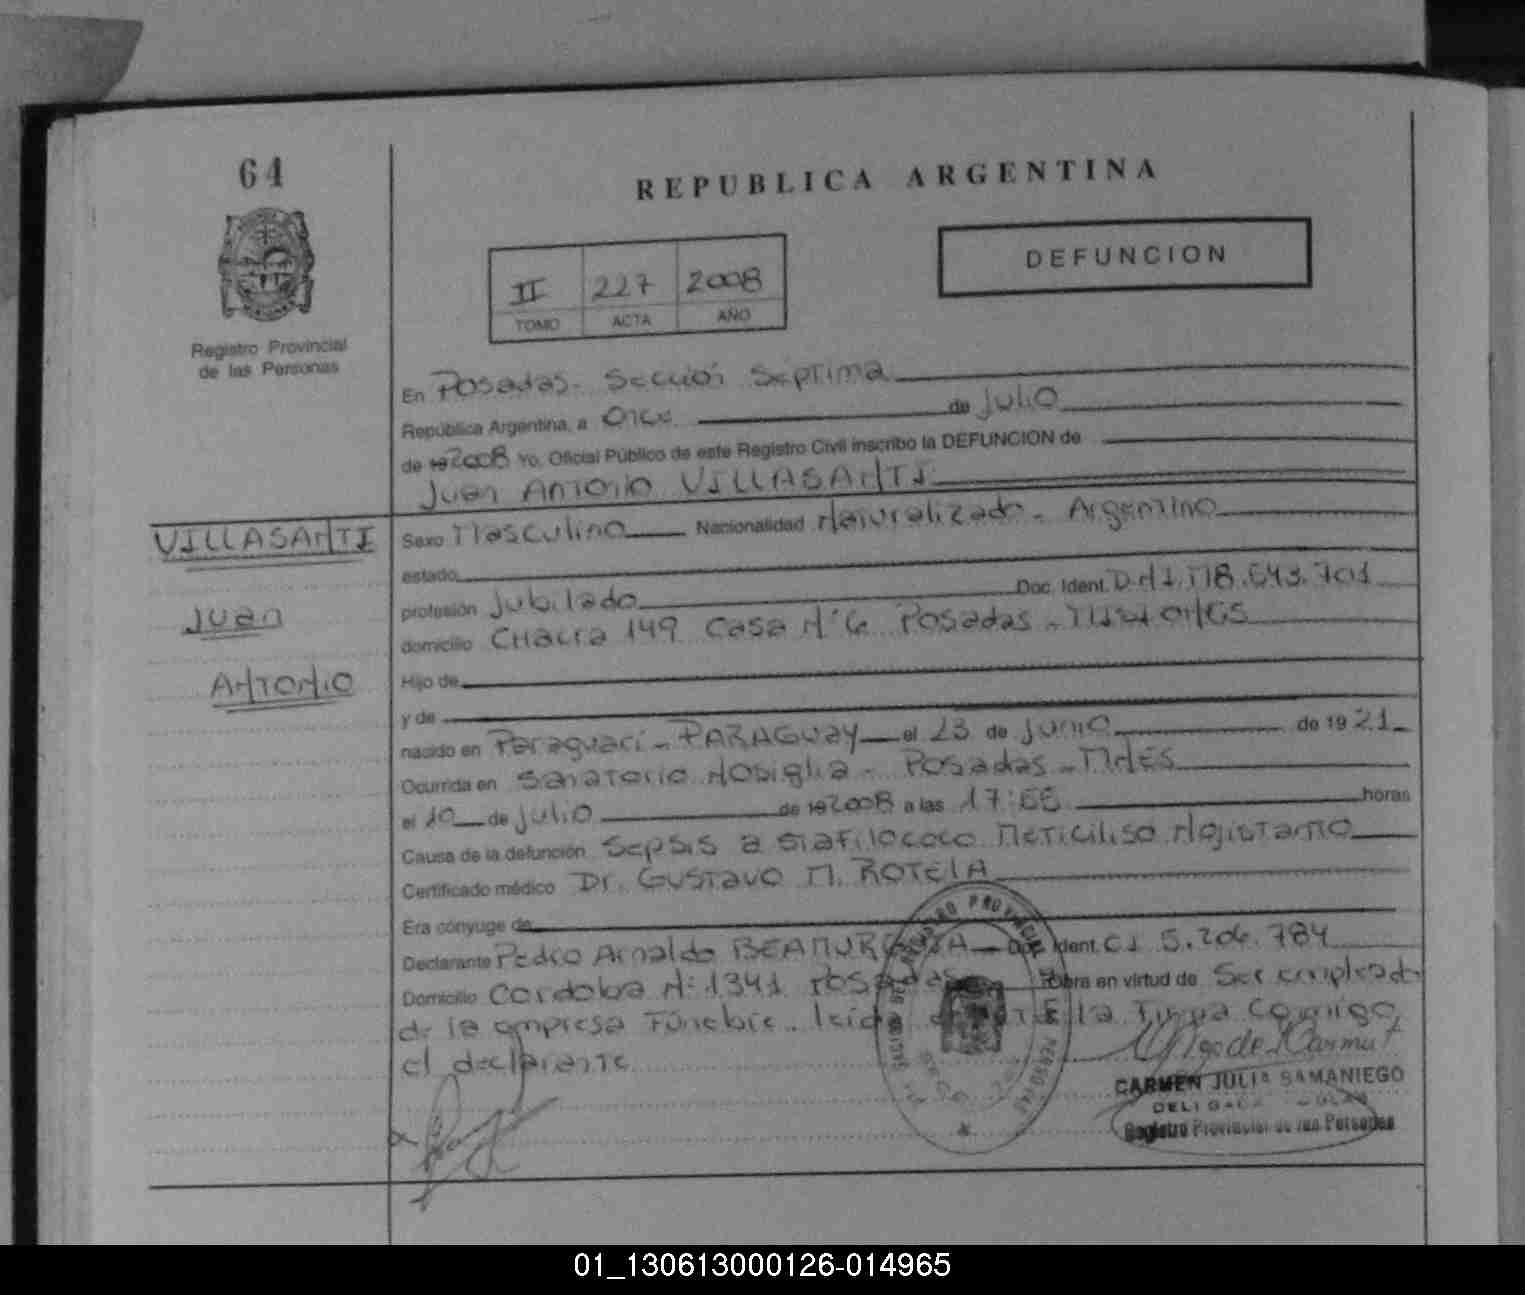 64
REPUBLICA ARGENTINA
DEFUNCION
II 227 2008
TOMO ACTA AÑO
Registro Provincial
de las Personas
En Posadas - Sección Séptima
República Argentina, a Once de Julio
de 19 2008 Yo, Oficial Público de este Registro Civil inscribo la DEFUNCION de
Juan Antonio VILLASANTI
VILLASANTI
Juan
ANTONIO
Sexo Masculino Nacionalidad Naturalizado - Argentino
estado
profesión Jubilado Doc. Ident. D.N.I. M8.643.701
domicilio CHacra 149 Casa N° 6 Posadas - Misiones
Hijo de
y de
nacido en Paraguarí - PARAGUAY el 23 de Junio de 1921
Ocurrida en Sanatorio Nosiglia - Posadas - MNES
el 10 de Julio de 19 2008 a las 17:55 horas
Causa de la defunción Sepsis a Stafilococo Meticiliso
Certificado médico Dr. Gustavo M. ROTELA
Era cónyuge de
Declarante Pedro Arnaldo Doc. Ident. CI 5.206.784
Domicilio Cordoba N: 1341 Posadas Obra en virtud de Ser empleado
de la empresa Fúnebre. Leida el acta la firma conmigo
el declarante
CARMEN JULIA SAMANIEGO
Registro Provincial de las Personas
01_130613000126-014965